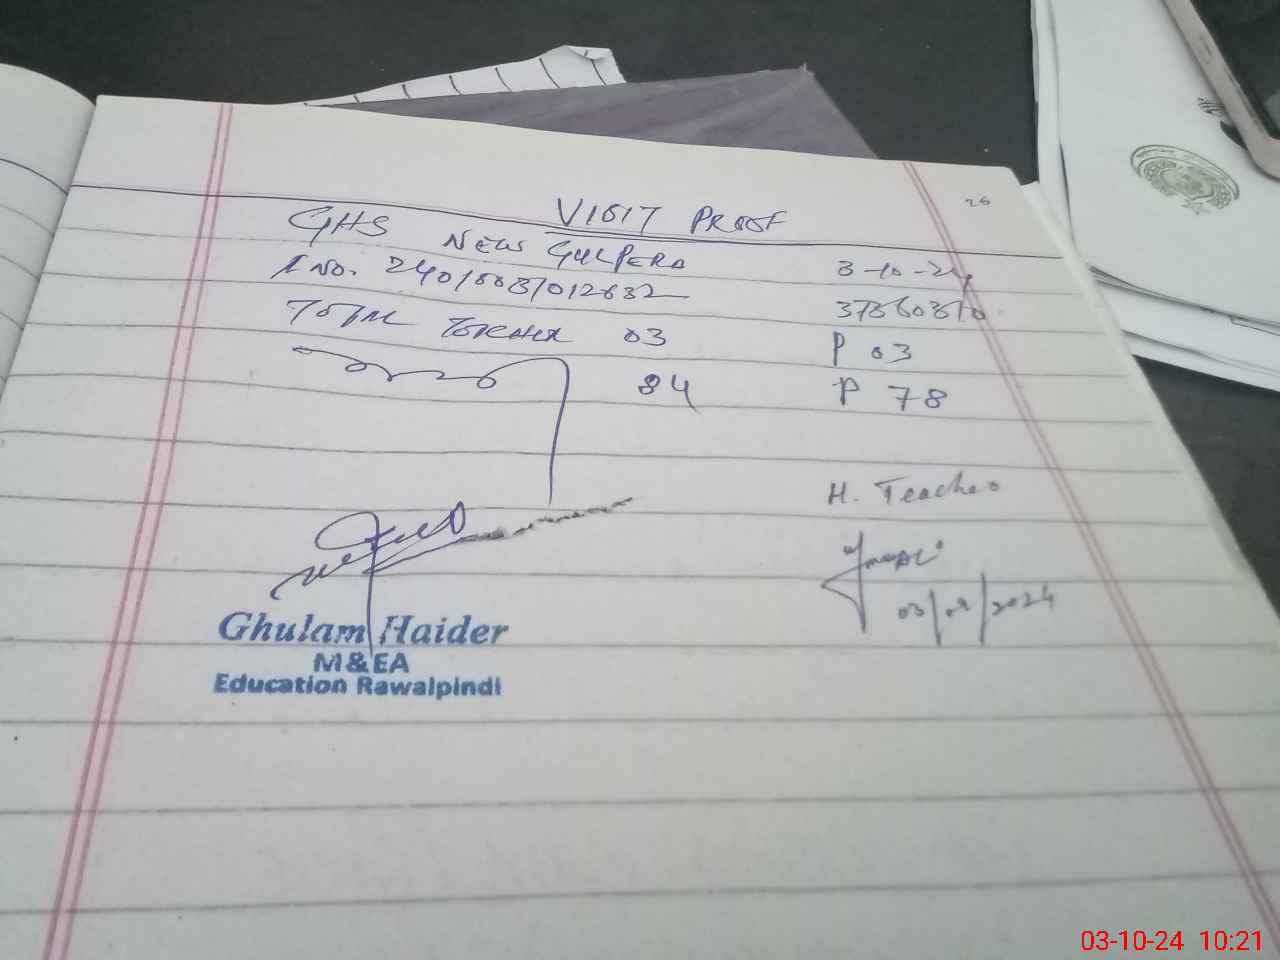 26
VISIT PROOF
GHS NEW GULPERA 3-10-24
I NO. 37360310
TOTAL TEACHER 03 P 03
84 P 78
H. Teacher
2024
Ghulam Haider
M&EA
Education Rawalpindi
03-10-24 10:21